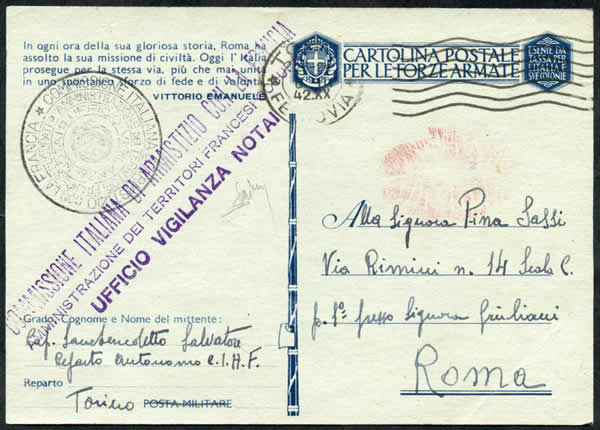 In ogni ora della sua gloriosa storia, Roma ha
assolto la sua missione di civiltà. Oggi l'Italia
prosegue per la stessa via, più che mai unita
in uno spontaneo sforzo di fede e di volontà.
VITTORIO EMANUELE
CARTOLINA POSTALE
PER LE FORZE ARMATE
ESENTE DA
TASSA PER
L'ITALIA E
SUE COLONIE
42.XX
FERROVIA
COMMISSIONE ITALIANA
FRANCIA
COMMISSIONE ITALIANA DI ARMISTIZIO CON LA FRANCIA
AMMINISTRAZIONE DEI TERRITORI FRANCESI
UFFICIO VIGILANZA NOTAI
Alla Signora Pina Sassi
Via Rimini n. 14 Scala C.
p. 1° presso Signora Giuliani
Roma
Grado, Cognome e Nome del mittente:
Cap. Sambenedetto Salvatore
Reparto Autonomo C.I.A.F.
Reparto
Torino POSTA MILITARE